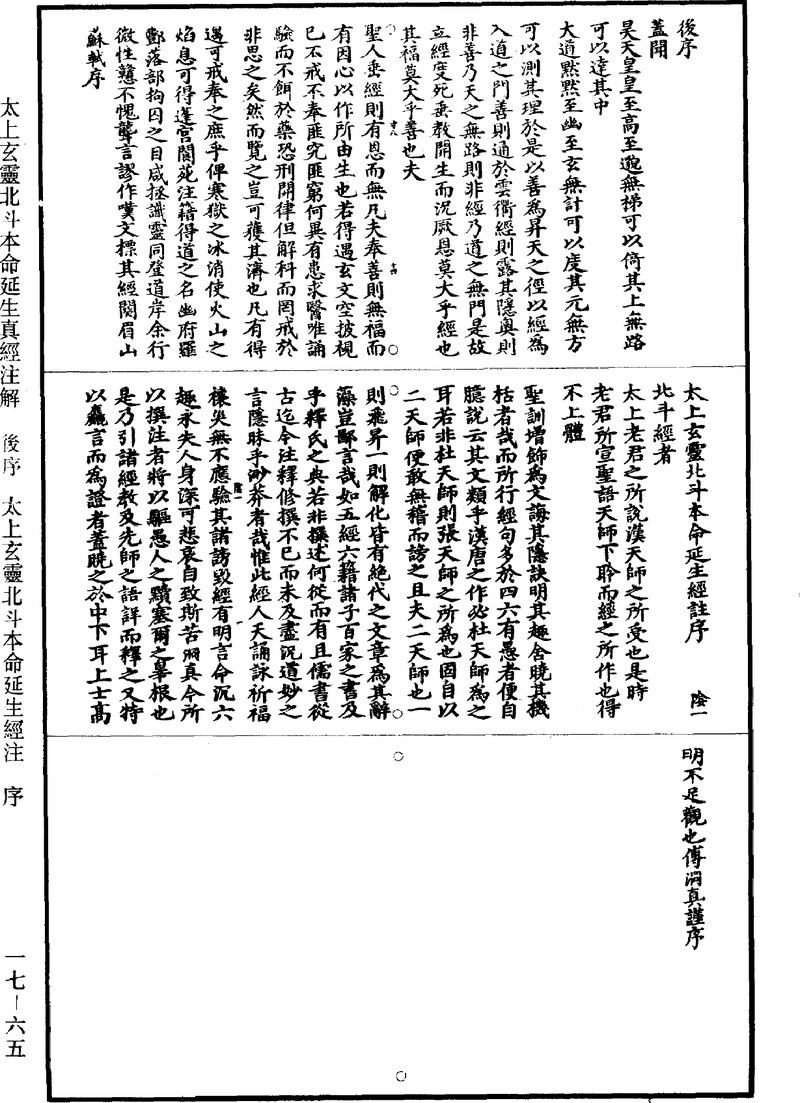 後序
蓋聞
昊天皇皇至高至邈無梯可以倚其上無路
可以達其中
大道黙黙至幽至玄無計可以度其元無方
可以測其理於是以善為昇天之徑以經為
入道之門善則通於雲衢經則露其隱奥則
非善乃天之無路則非經乃道之無門是故
立經度死垂教開生而況厥恩莫大乎經也
其福莫大乎善也夫
聖人垂經則有恩而無凡夫奉善則無福而
有因心以作所由生也若得遇玄文空披視
已不戒不奉匪究匪窮何異有患求醫唯誦
驗而不餌於藥恐刑開律但解科而罔戒於
非思之矣然而覽之豈可獲其濟也凡有得
遇可戒奉之庶乎俾寒獄之冰消使火山之
焰息可得蓬宮閬苑注籍得道之名幽府羅
酆落部拘囚之目咸拯識靈同登道岸余行
微性戇不愧聾言謬作嘆文標其經闋眉山
蘇軾序
太上玄靈北斗本命延生經註序 陰一
北斗經者
太上老君之所說漢天師之所受也是時
老君所宣聖語天師下聆而經之所作也得
不上體
聖訓增飾為文誨其隱訣明其趣舍曉其機
括者哉而所行經句多於四六有愚者便自
臆說云其文類乎漢唐之作必杜天師為之
耳若非杜天師則張天師之所為也固自以
二天師便敢無稽而謗之且夫二天師也一
則飛昇一則解化皆有絕代之文章為其辭
藻豈鄙言哉如五經六籍諸子百家之書及
乎釋氏之典若非撰述何從而有且儒書從
古迄今注釋修撰不已而未及盡況道妙之
言隱昧乎渺莽者哉惟此經人天誦詠祈福
禳災無不應驗其諸謗毀經有明言命沉六
趣永失人身深可悲哀自致斯苦洞真今所
以撰注者將以驅愚人之蹟塞爾之辠根也
是乃引諸經教及先師之語詳而釋之又特
以麤言而為證者蓋曉之於中下耳上士高
明不足觀也傅洞真謹序
太上玄靈北斗本命延生真經注解 後序 太上玄靈北斗本命延生經注 序
一七－六五